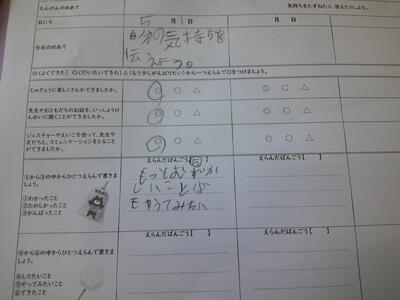 たんけんのめあて
気持ちをたずねたり、答えたりしよう。
日にち
5 月 1 日
月 日
今日のめあて
自分の気持ちを
伝えよう。
◎(よくできた) ○(だいたいできた) △(もう少しがんばりたい)から一つえらんで○をつけましょう。
じゅぎょうに楽しくさんかできましたか。
◎ ○ △
◎ ○ △
先生やおともだちのお話を、いっしょうけんめいに聞くことができましたか。
◎ ○ △
◎ ○ △
ジェスチャーやえいごを使って、先生や
友だちと、コミュニケーションをとること
ができましたか。
◎ ○ △
◎ ○ △
えらんだばんごう【5】
えらんだばんごう【 】
①から③の中からひとつえらんで書きま
しょう。
①わかったこと
②たのしかったこと
③がんばったこと
もっとむずか
しいことば
もやってみたい
えらんだばんごう【 】
えらんだばんごう【 】
④から⑥の中からひとつえらんで書きま
しょう。
④しりたいこと
⑤やってみたいこと
⑥できたこと